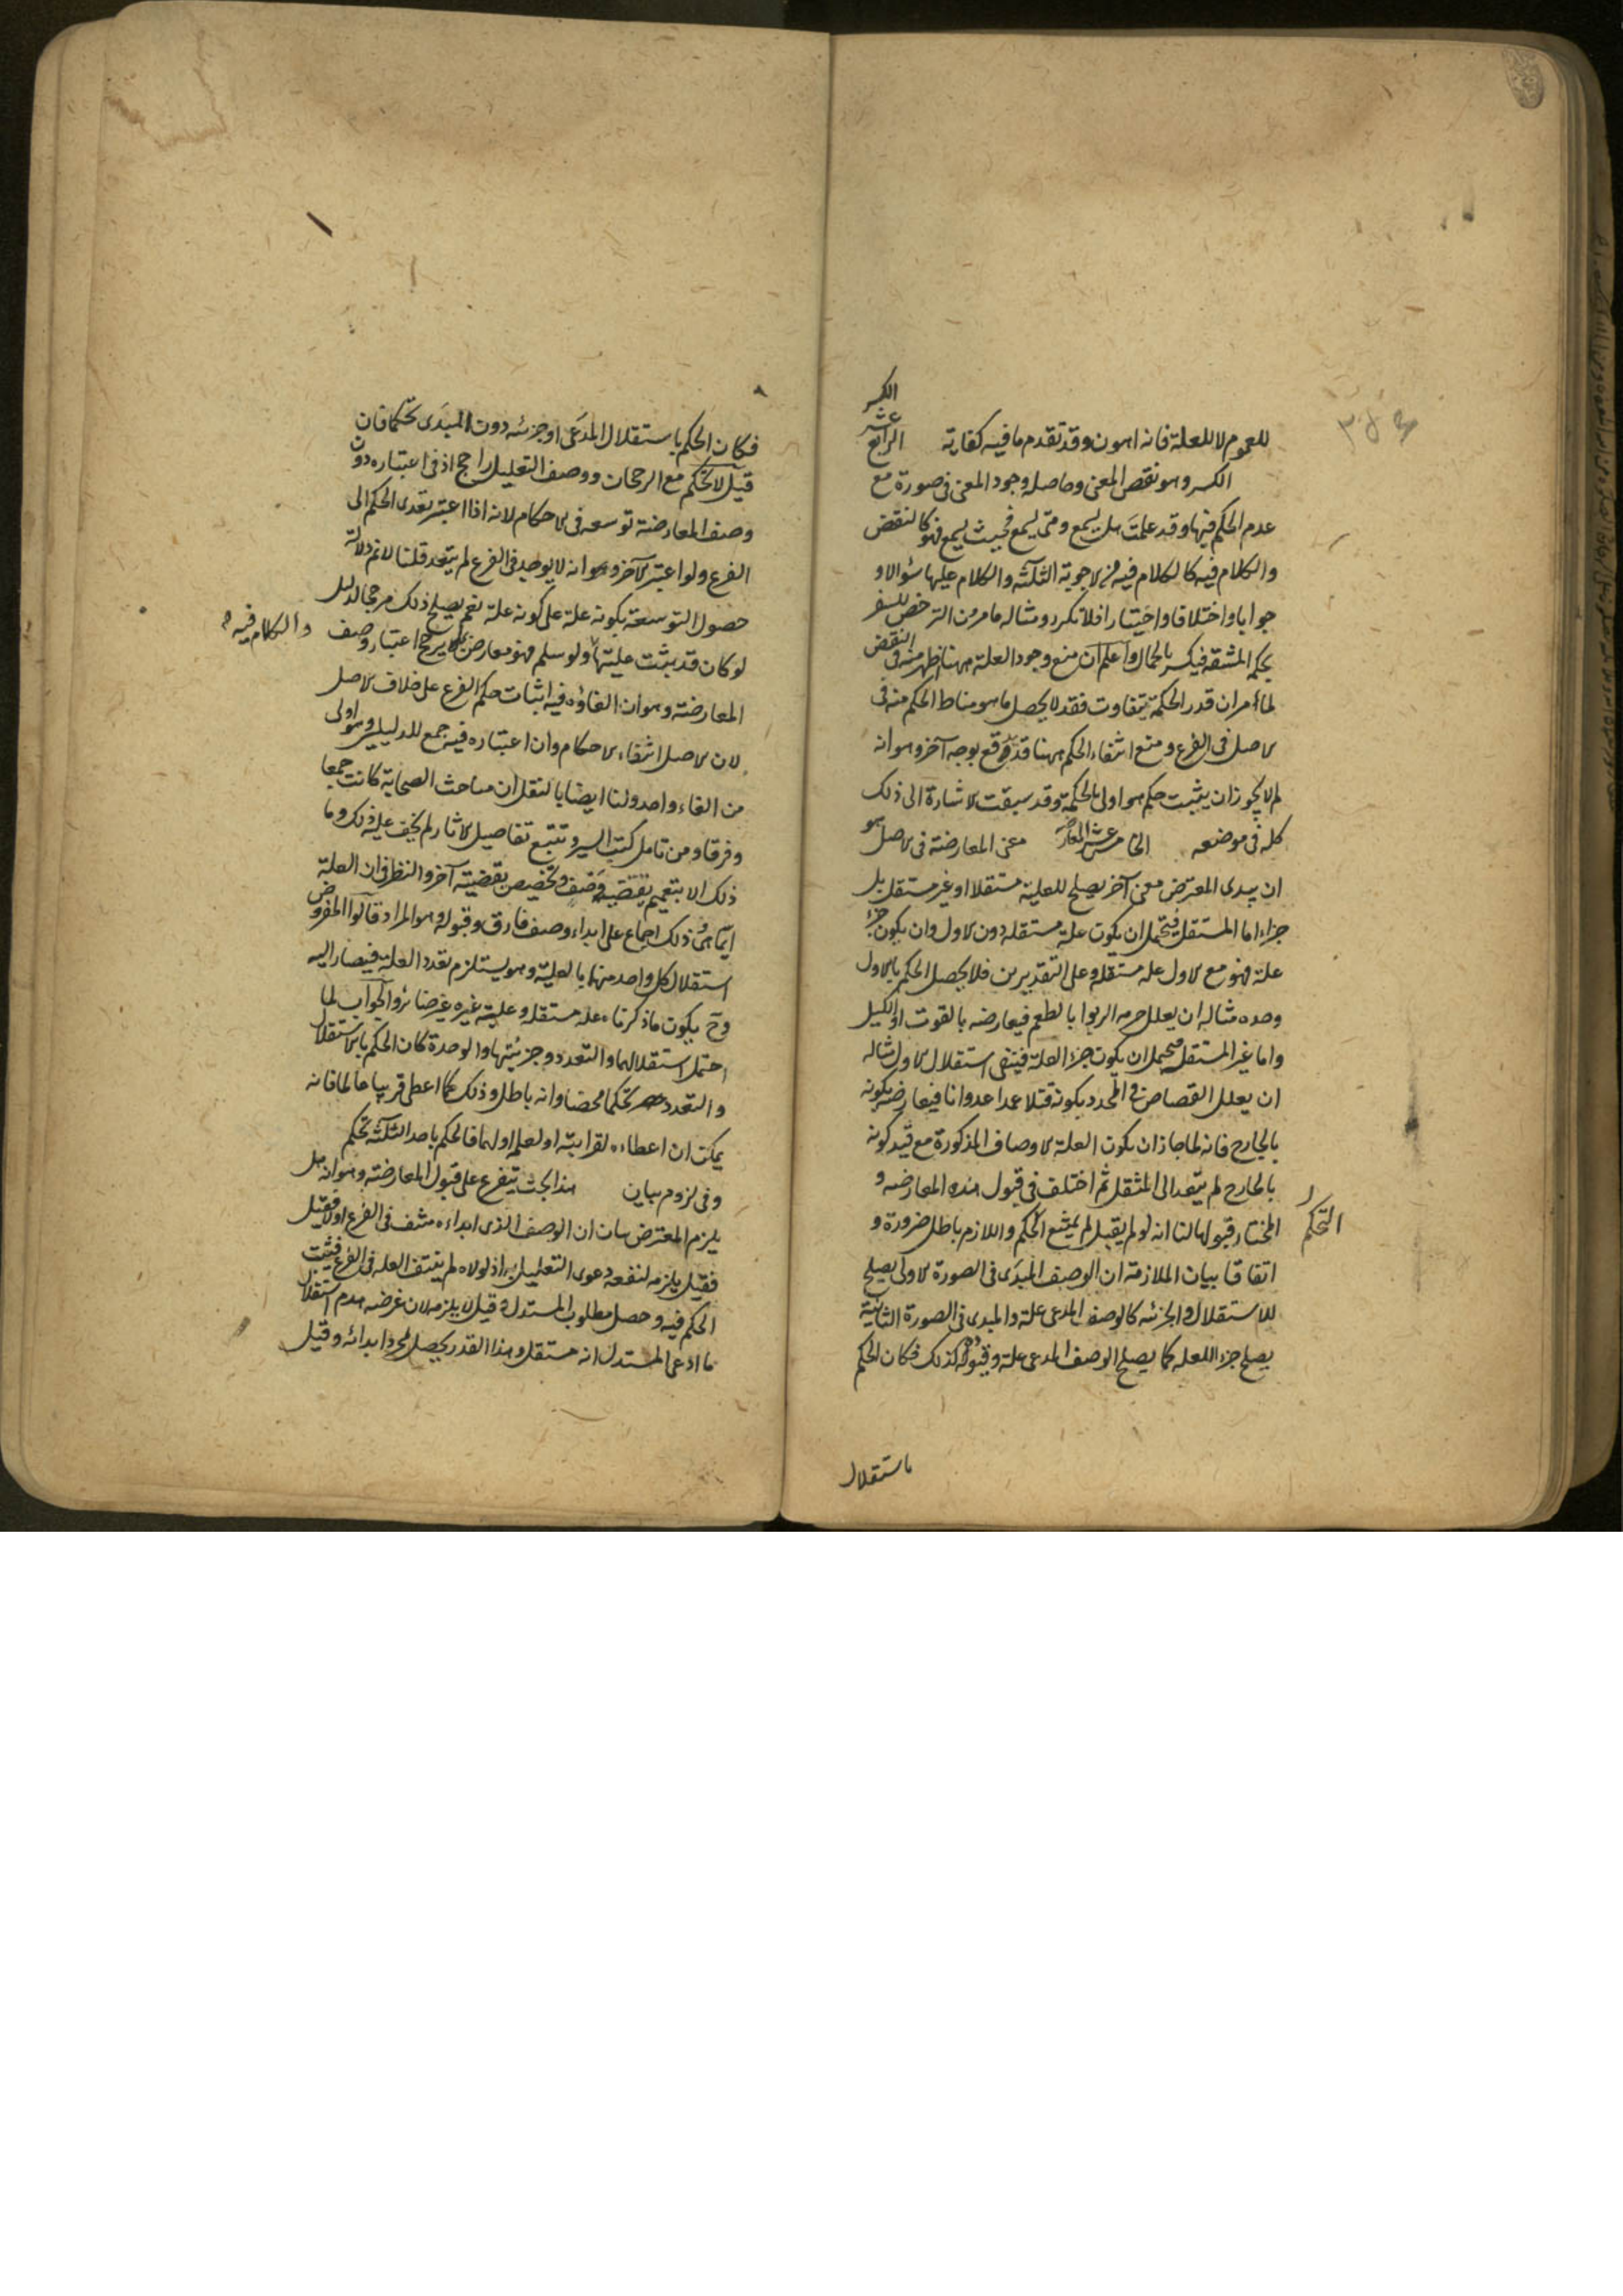 الكسر
للعموم لا للعلة فانه اهون وقد تقدم ما فيه كفاية الرابع عشر
الكسر وهو نقض المعنى وحاصله وجود المعنى فى صورة مع
عدم الحكم فيها وقد علمت هل يسمع ومتى يسمع فحيث يسمع فهو كالنقض
والكلام فيه كالكلام فيه فى الاجوبة الثلثة والكلام عليها سؤالا و
جوابا واختلافا واختيارا فلا نكرر ومثاله ما مر من الترخص للسفر
بحكمه المشقه فيكسر بالحمال واعلم ان منع وجود العلة ههنا اظهر منه فى النقض
لما مر ان قدر الحكمة يتفاوت فقد لا يحصل ما هو مناط الحكم منه فى
الاصل فى الفرع ومنع انتفاء الحكم ههنا قد يدفع بوجه آخر وهو انه
لم لا يجوز ان يثبت حكم هو اولى بالحكمة وقد سبقت الاشارة الى ذلك
كله فى موضعه الخامس عشر المعارضة معنى المعارضة فى الاصل هو
ان يبدى المعترض معنى آخر يصلح للعلية مستقلا او غير مستقل بل
جزاء اما المستقل فيحتمل ان يكون علة مستقله دون الاول وان يكون جزء
علة فهو مع الاول علة مستقله وعلى التقديرين فلا يحصل الحكم بالاول
وحده مثاله ان يعلل حرمه الربوا بالطعم فيعارضه بالقوت او الكيل
واما غير المستقل فيحتمل ان يكون جزء العلة فينتفى استقلال الاول مثاله
ان يعلل القصاص فى المحدد بكونه قتلا عمدا عدوانا فيعارضه بكونه
بالجارح فانه لما جاز ان يكون العلة الاوصاف المذكورة مع قيد كونه
بالجارح لم يتعد الى المثقل ثم اختلف فى قبول هذه المعارضه و
المختار قبولها لنا انه لو لم يقبل لم يمتنع التحكم واللازم باطل ضرورة و
التحكم
اتفاقا بيان الملازمة ان الوصف المبدَى فى الصورة الاولى يصلح
للاستقلال والجزئه كالوصف المدعى علة والمبدى فى الصورة الثانية
يصلح جزء اللعله كما يصلح الوصف المدعى علة وقبوله كذلك فكان الحكم
باستقلال
فكان الحكم باستقلال المدعَى او جزئه دون المبدَى تحكما فان
قيل لا تحكم مع الرجحان ووصف التعليل راجح اذ فى اعتباره دون
وصف المعارضة توسعه فى الاحكام لانه اذا اعتبر تعدى الحكم الى
الفرع ولو اعتبر الآخر وهو انه لا يوجد فى الفرع لم يتعد قلنا لا نم دلالة
حصول التوسعة بكونه علة على كونه علة نعم يصلح ذلك مرجحا لدليل
لو كان قد يثبت عليتها ولو سلم فهو معارض بما يرجح اعتبار وصف
والكلام فيه
المعارضة وهو ان الغاؤه فيه اثبات حكم الفرع على خلاف الاصل
لان الاصل انتفاء الاحكام وان اعتباره فيه جمع للدليلين وهو اولى
من الغاء واحد ولنا ايضا بالنقل ان مباحث الصحابة كانت جمعا
وفرقا ومن تامل كتب السير وتتبع تفاصيل الاثار لم يخف عليه ذلك وما
ذلك الا بتعميم وصف وتخصيص بقضيته آخر والنظر فى ان العلة
ايما هى وفى ذلك اجماع على ابداء وصف فارق وقبوله وهو المراد قالوا المفروض
استقلال كل واحد منهما بالعلية وهو يستلزم تعدد العلة فيصار اليه
وح يكون ما ذكرناه علة مستقله وعلية غيره غير ضائر والجواب لما
احتمل استقلالهما والتعدد وجزئيتهما والوحدة كان الحكم بالاستقلال
والتعدد تحكما محضا وانه باطل وذلك كما اعطى قريبا عالما فانه
يمكن ان اعطاءه لقرابته او لعلمه او لهما فالحكم باحد الثلثة تحكم
وفى لزوم بيان هذا بحث يتفرع على قبول المعارضة وهو انه هل
يلزم المعترض بيان ان الوصف الذى ابداه منتف فى الفرع او لا فقيل
فقيل يلزمه لنفعه دعوى التعليل به اذ لولاه لم ينتف العله فى الفرع فيثبت
الحكم فيه وحصل مطلوب المستدل وقيل لا يلزمه لان غرضه هدم استقلال
ما ادعى المستدل انه مستقل وهذا القدر يحصل بمجرد ابدائه وقيل